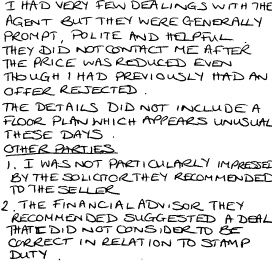 I HAD VERY FEW DEALINGS WITH THE
AGENT BUT THEY WERE GENERALLY
PROMPT, POLITE AND HELPFUL
THEY DID NOT CONTACT ME AFTER
THE PRICE WAS REDUCED EVEN
THOUGH I HAD PREVIOUSLY HAD AN
OFFER REJECTED.
THE DETAILS DID NOT INCLUDE A
FLOOR PLAN WHICH APPEARS UNUSUAL
THESE DAYS.
OTHER PARTIES
1. I WAS NOT PARTICULARLY IMPRESSED
BY THE SOLICITOR THEY RECOMMENDED
TO THE SELLER
2. THE FINANCIAL ADVISOR THEY
RECOMMENDED SUGGESTED A DEAL
THAT I DID NOT CONSIDER TO BE
CORRECT IN RELATION TO STAMP
DUTY.